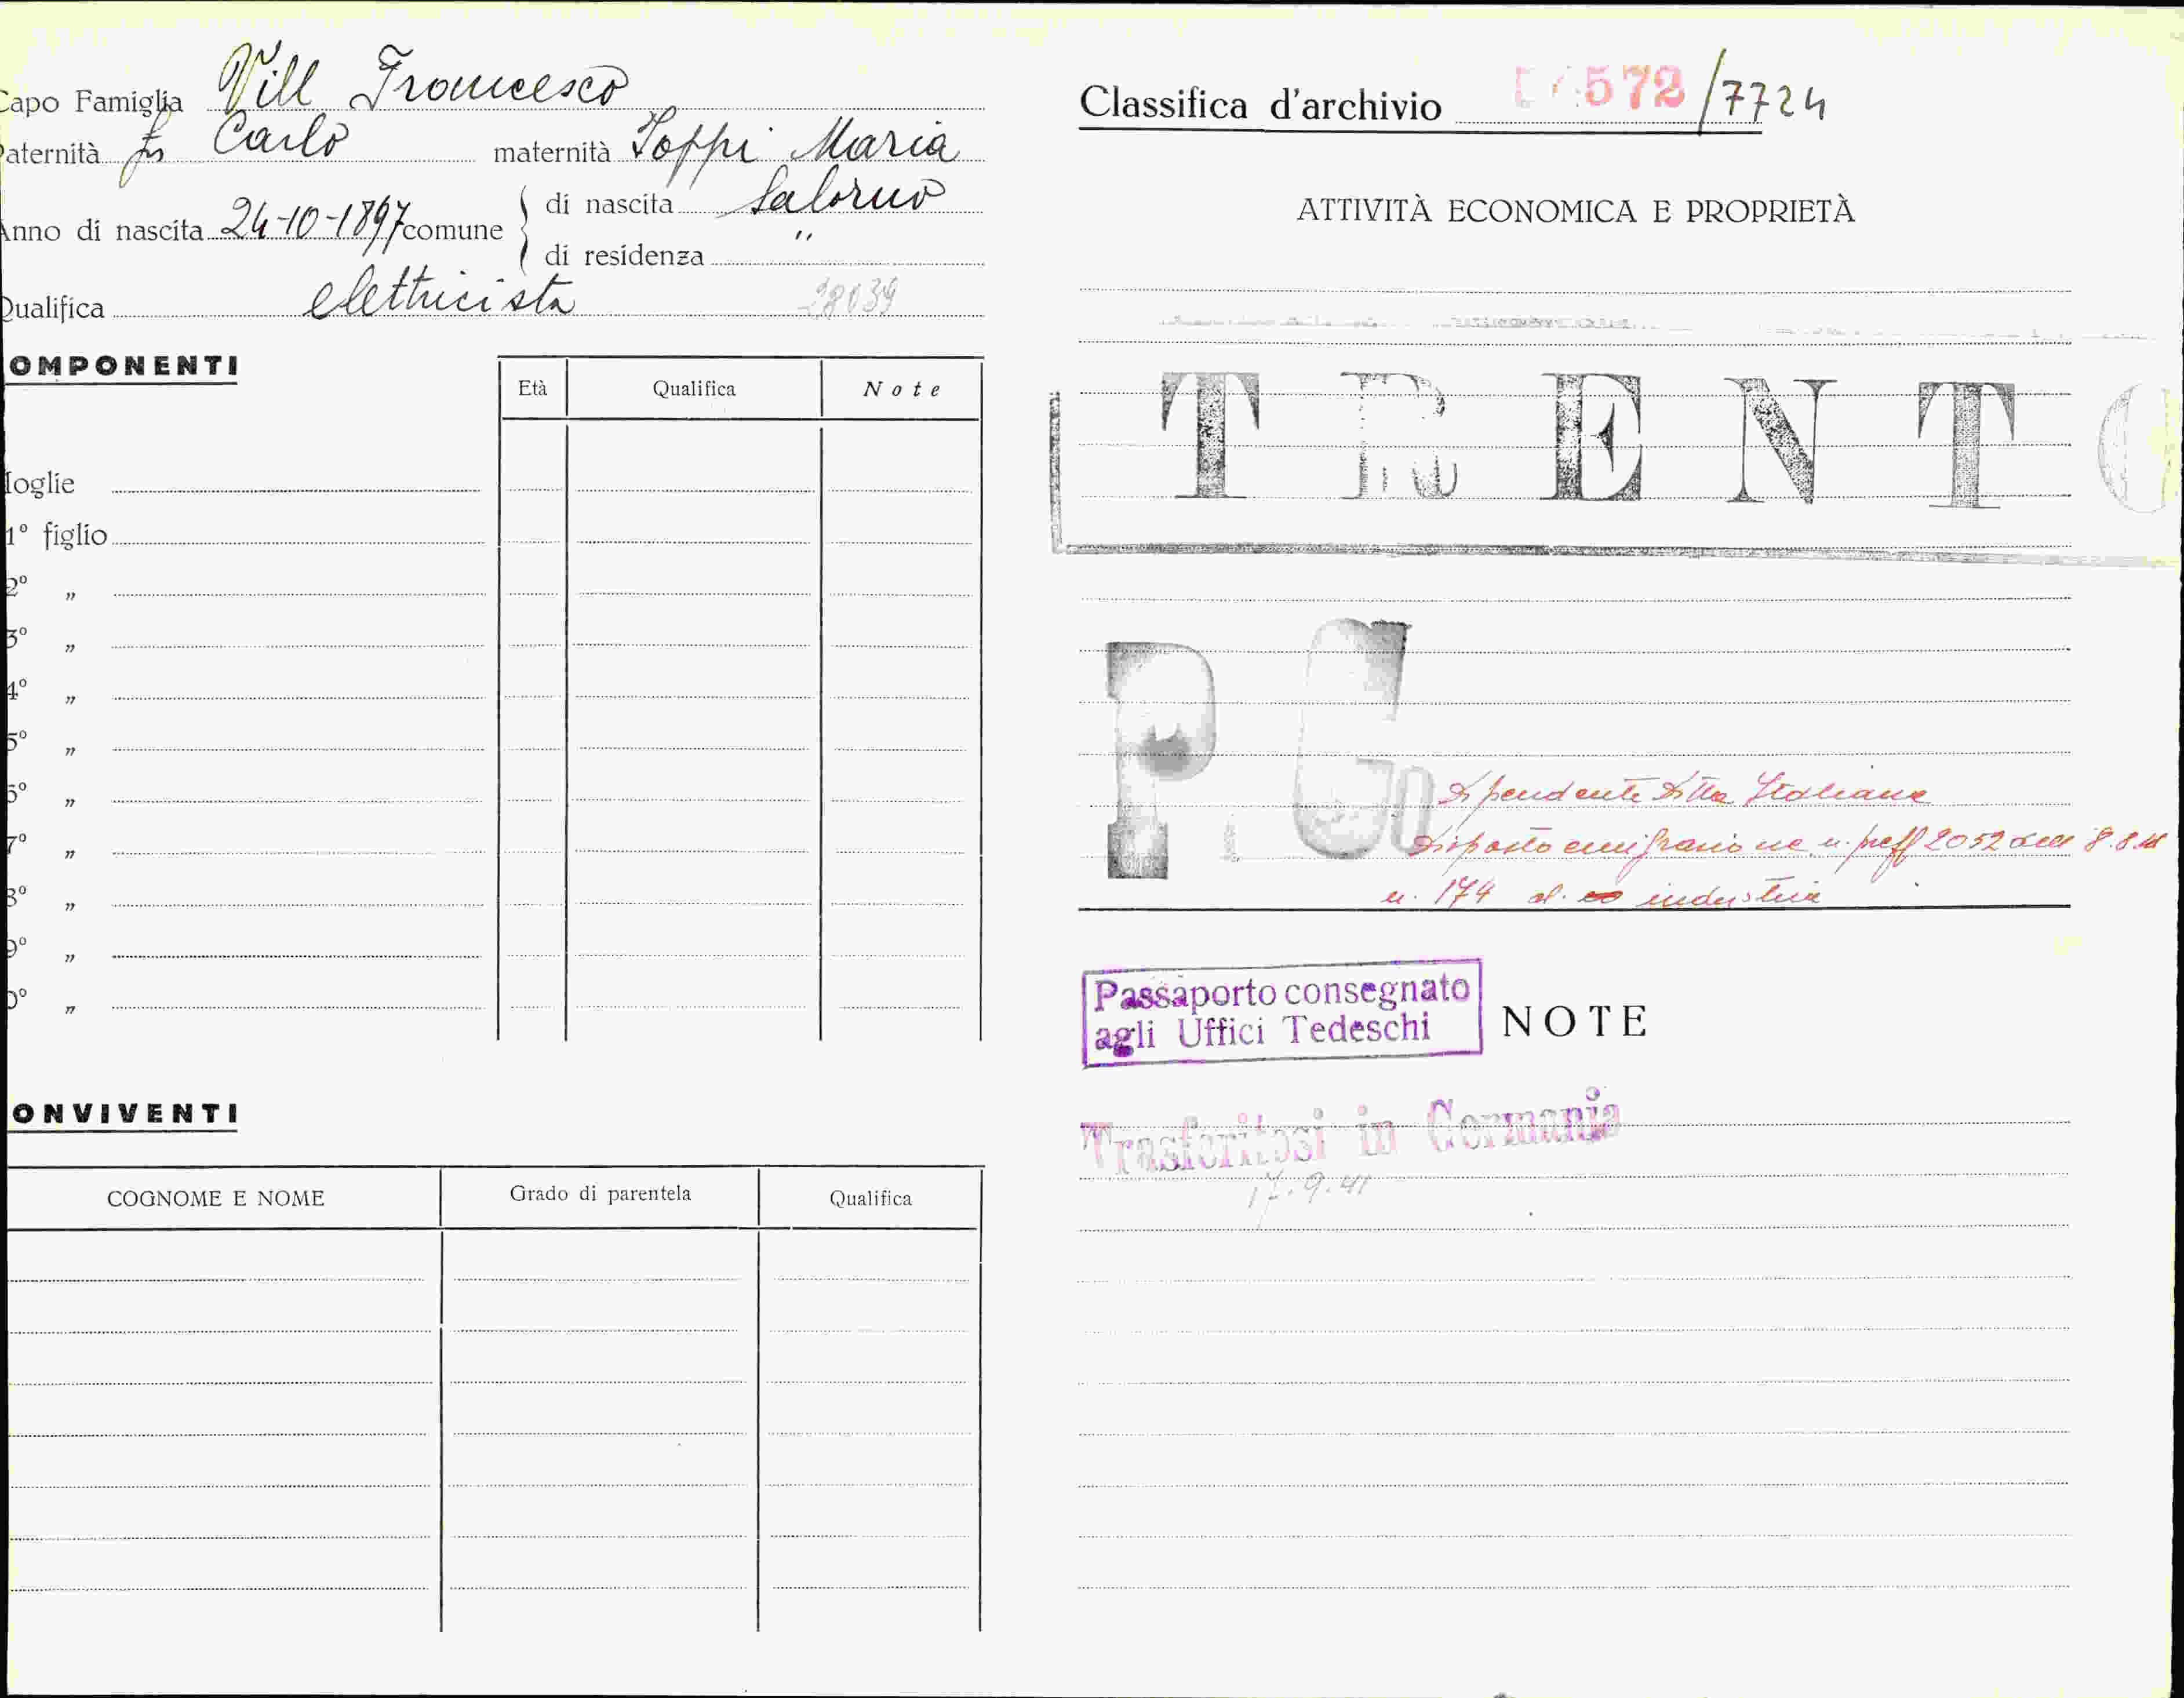 Capo Famiglia Vill Francesco
Paternità fu Carlo maternità Toppi Maria
Anno di nascita 24-10-1897 comune di nascita Salorno
di residenza "
Qualifica elettricista 28039
OMPONENTI
Età Qualifica Note
oglie
1° figlio
2° "
3° "
4° "
5° "
6° "
7° "
8° "
9° "
0° "
ONVIVENTI
COGNOME E NOME Grado di parentela Qualifica
Classifica d'archivio 572/7724
ATTIVITÀ ECONOMICA E PROPRIETÀ
TRENTO
P.G.
Dipendente Ditta Italiana
Disposto emigrazione n. preff 2052 del 8.8.41
n. 174 al. industria
Passaporto consegnato
agli Uffici Tedeschi
NOTE
Trasferitosi in Germania
17.9.41